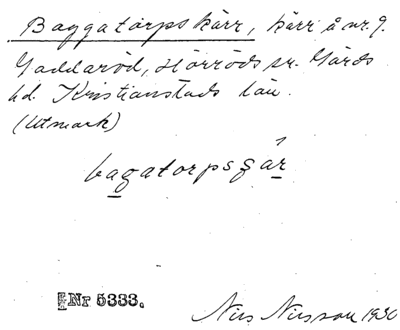 Baggatorpskärr, kärr å nr. 9.
Gaddaröd, Hörröds sn. Gärds
hd. Kristianstads län.
(Utmark)
bagatorpsʂár
Nr 5333.
Nils Nilsson 1930